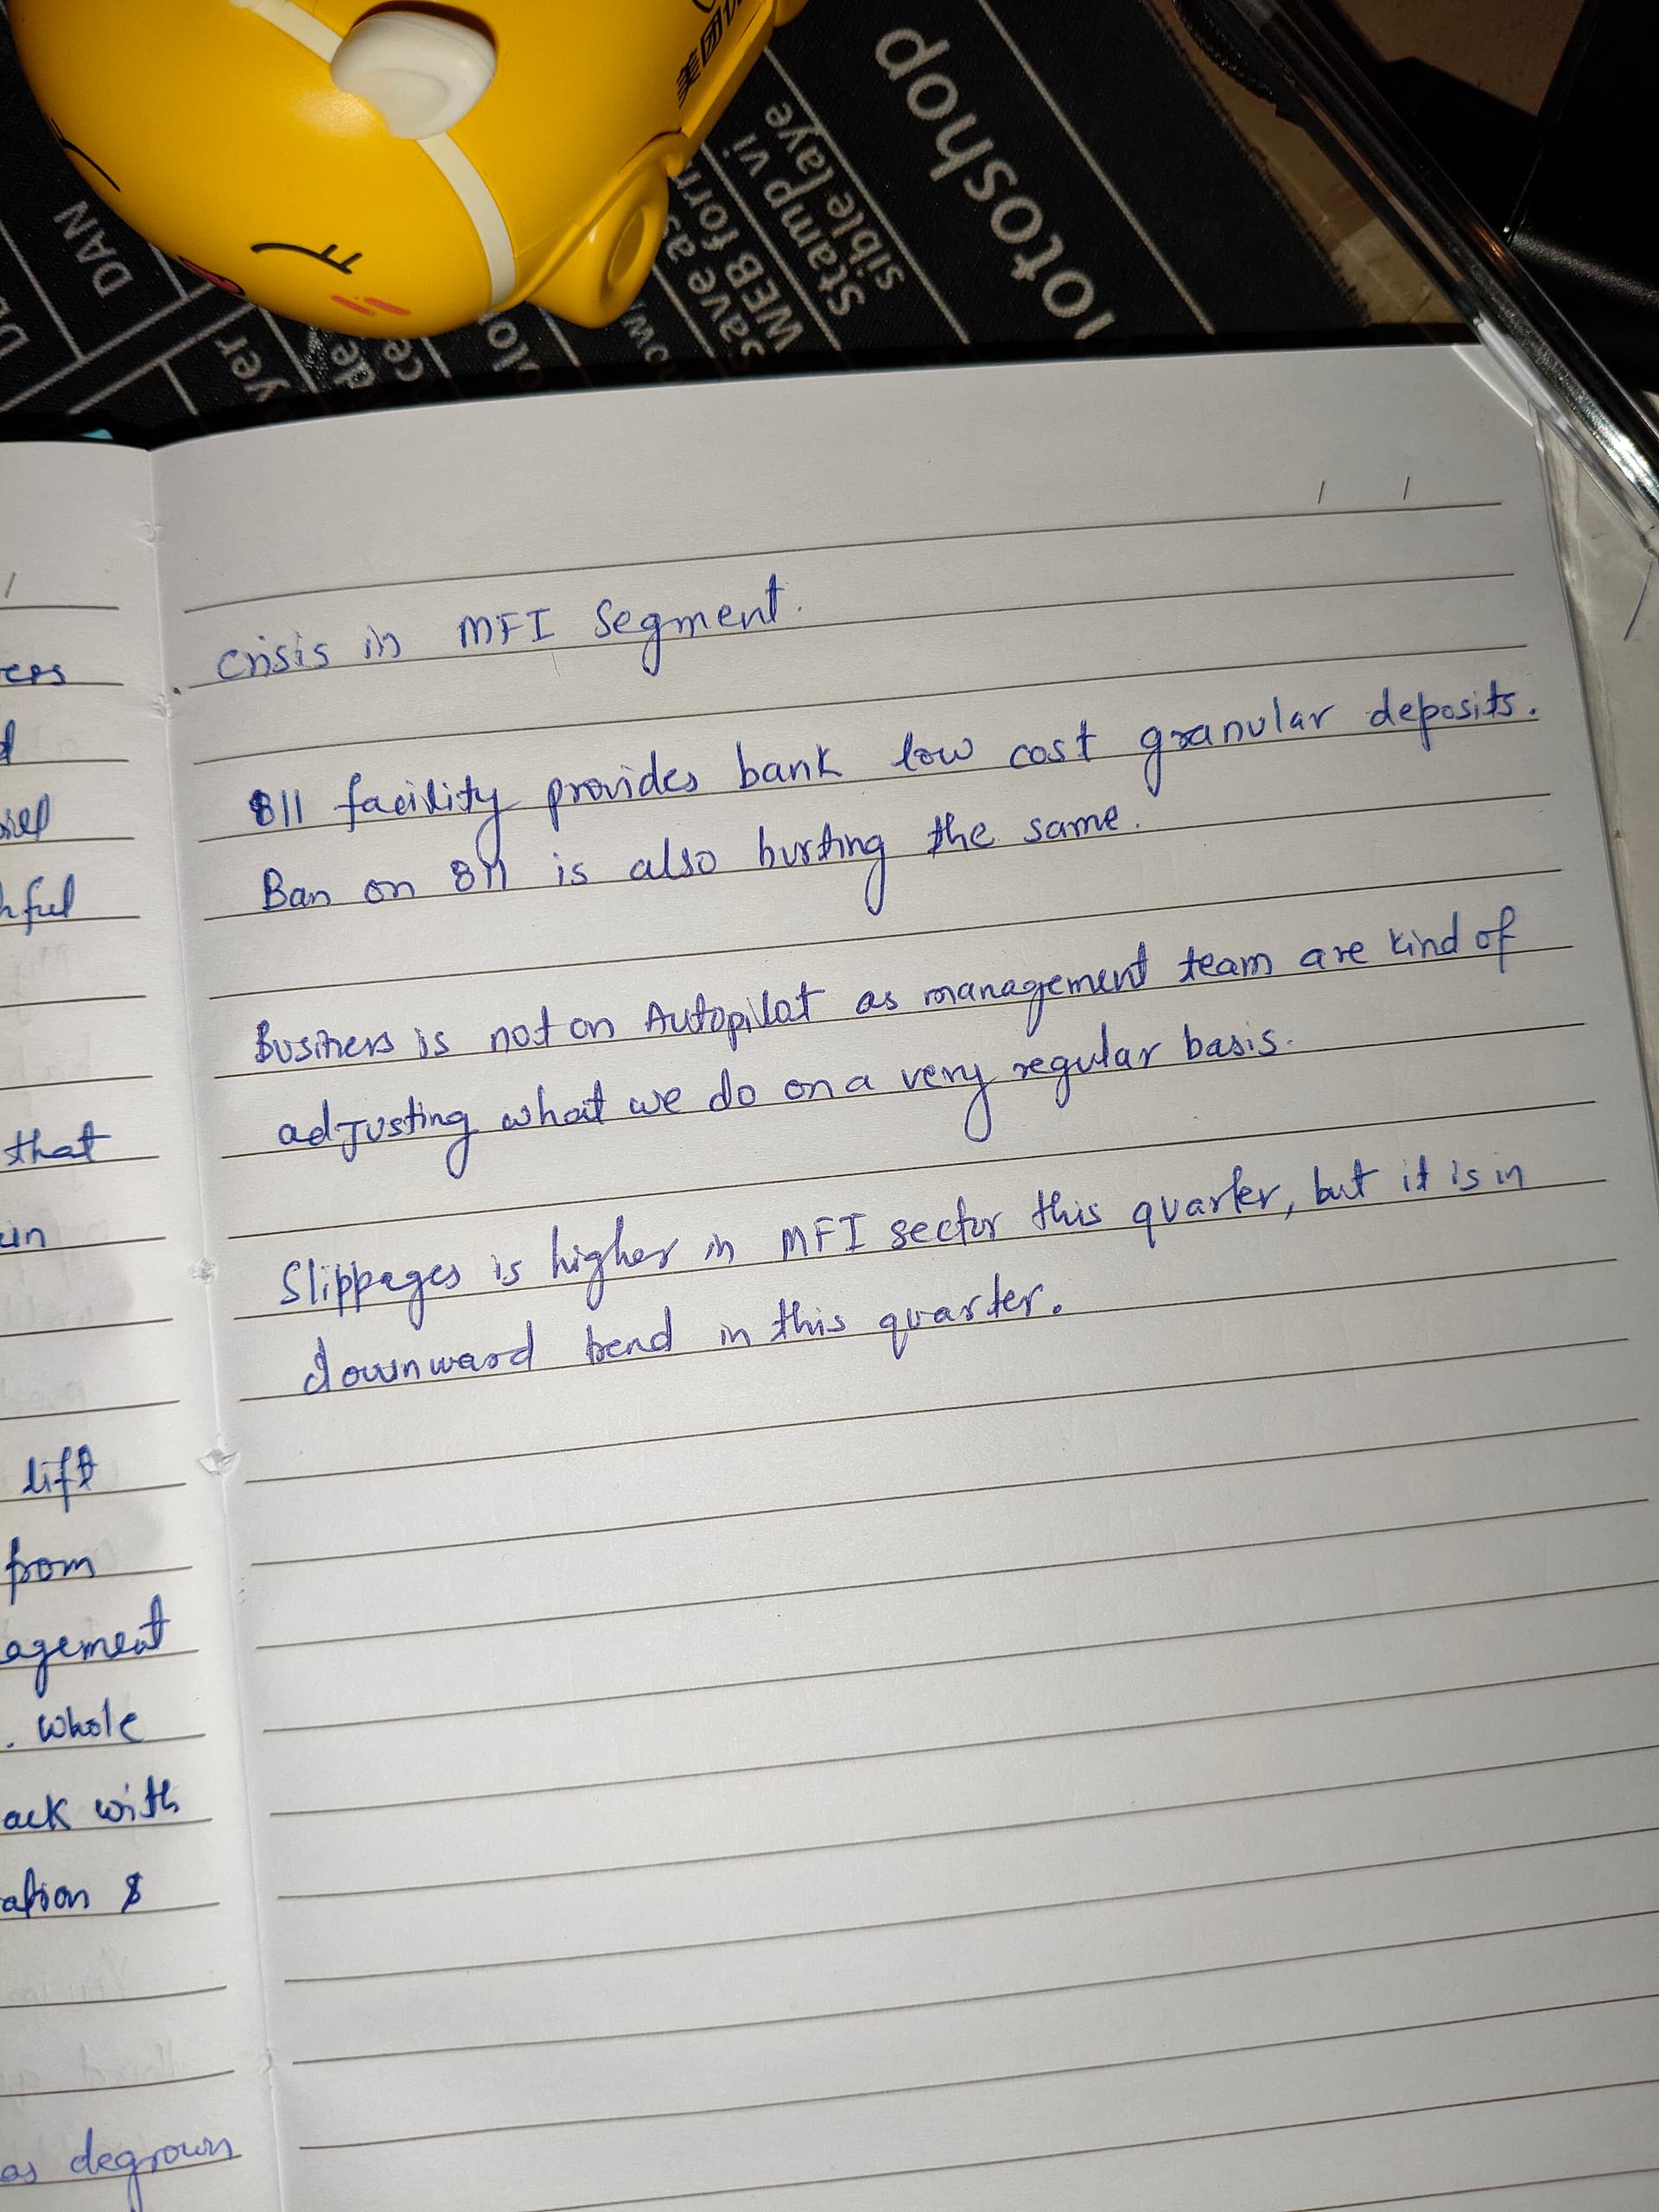 美团
otoshop
Stamp vi
sible laye
save as
WEB for
DAN
yer
crisis in MFI Segment.
811 facility provides bank low cost granular deposits.
Ban on 811 is also hurting the same.
Business is not on Autopilot as management team are kind of
adjusting what we do on a very regular basis.
Slippages is higher in MFI sector this quarter, but it is in
downward trend in this quarter.
that
lift
from
agement
. whole
ack with
ation &
as degrown